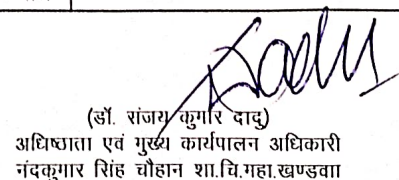 (डॉ. संजय कुमार दादू)
अधिष्ठाता एवं मुख्य कार्यपालन अधिकारी
नंदकुमार सिंह चौहान शा.चि.महा.खण्डवा